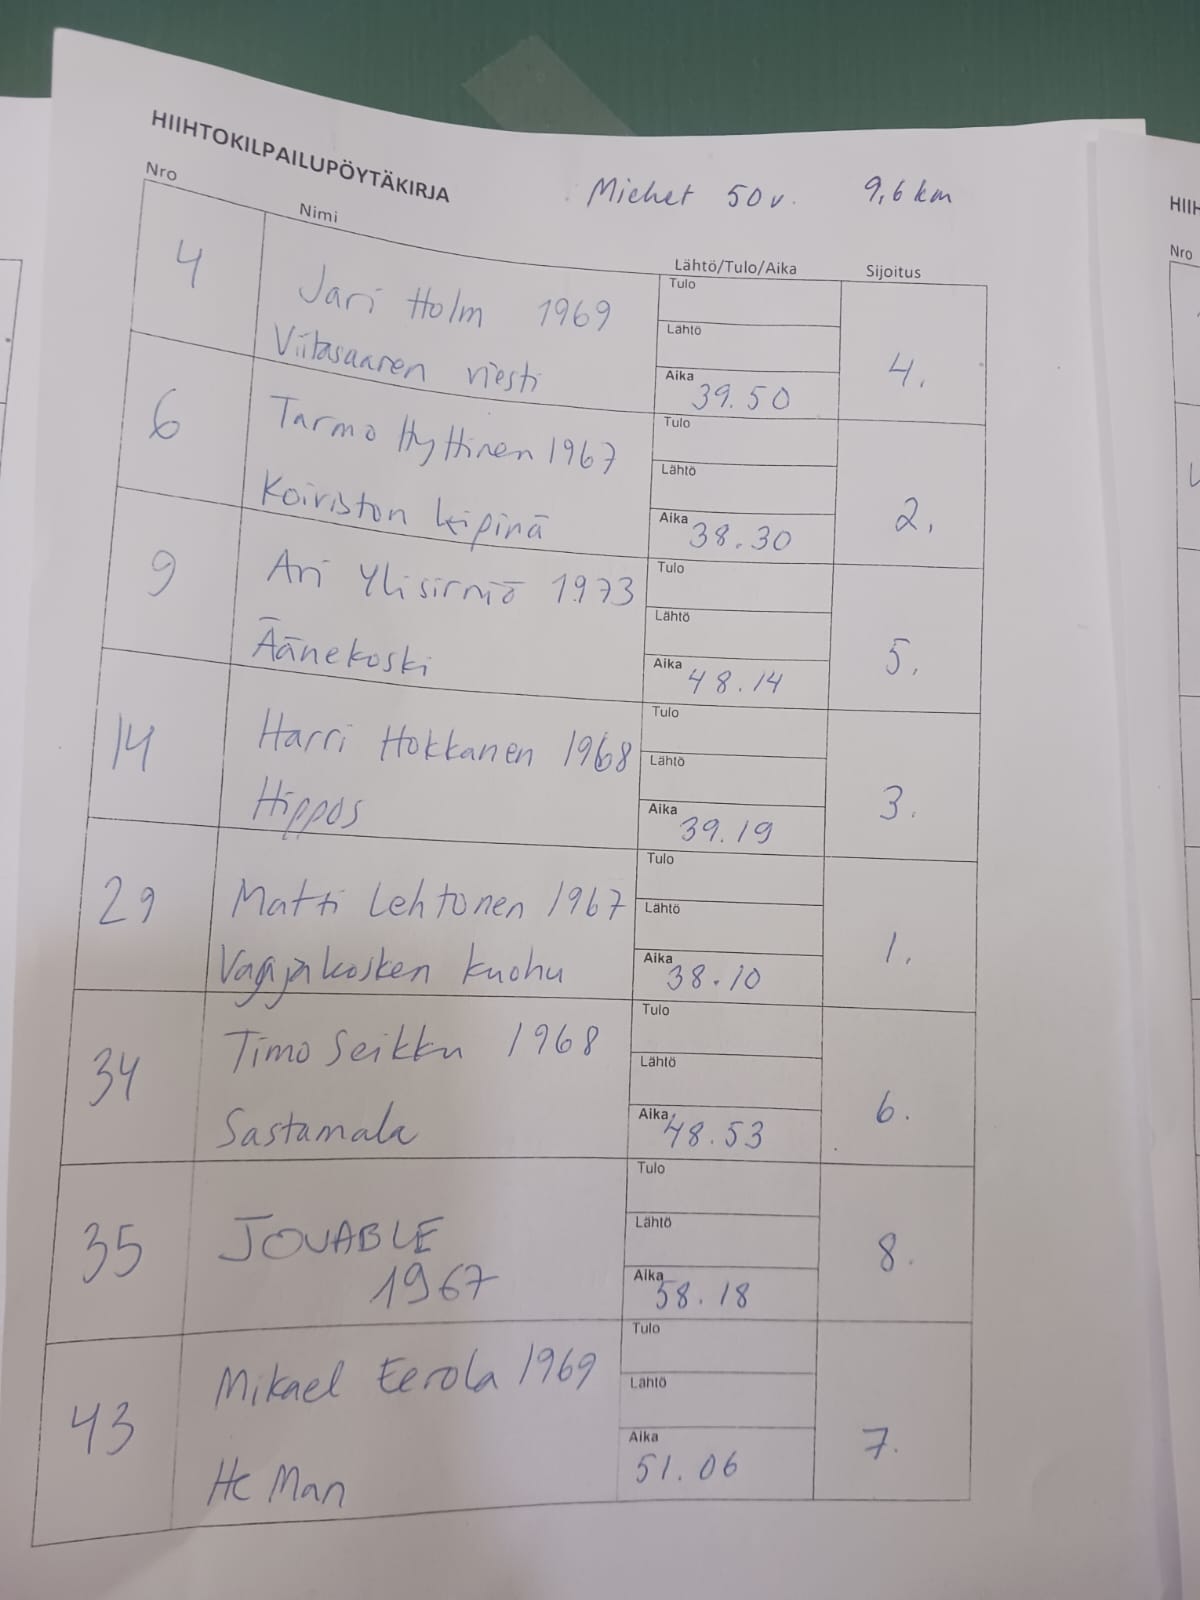 HIIHTOKILPAILUPÖYTÄKIRJA
Miehet 50 v. 9,6 km
Nro Nimi Lähtö/Tulo/Aika Sijoitus
4 Jari Holm 1969
Viitasaaren viesti
Tulo
Lähtö
Aika 39.50
4.
6 Tarmo Hyttinen 1967
Koiviston kipinä
Tulo
Lähtö
Aika 38.30
2.
9 Ari Ylisirniö 1973
Äänekoski
Tulo
Lähtö
Aika 48.14
5.
14 Harri Hokkanen 1968
Hippos
Tulo
Lähtö
Aika 39.19
3.
29 Matti Lehtonen 1967
Vaajakosken kuohu
Tulo
Lähtö
Aika 38.10
1.
34 Timo Seikku 1968
Sastamala
Tulo
Lähtö
Aika 48.53
6.
35 JOUABLE
1967
Tulo
Lähtö
Aika 58.18
8.
43 Mikael Eerola 1969
He Man
Tulo
Lähtö
Aika 51.06
7.
HIIH
Nro